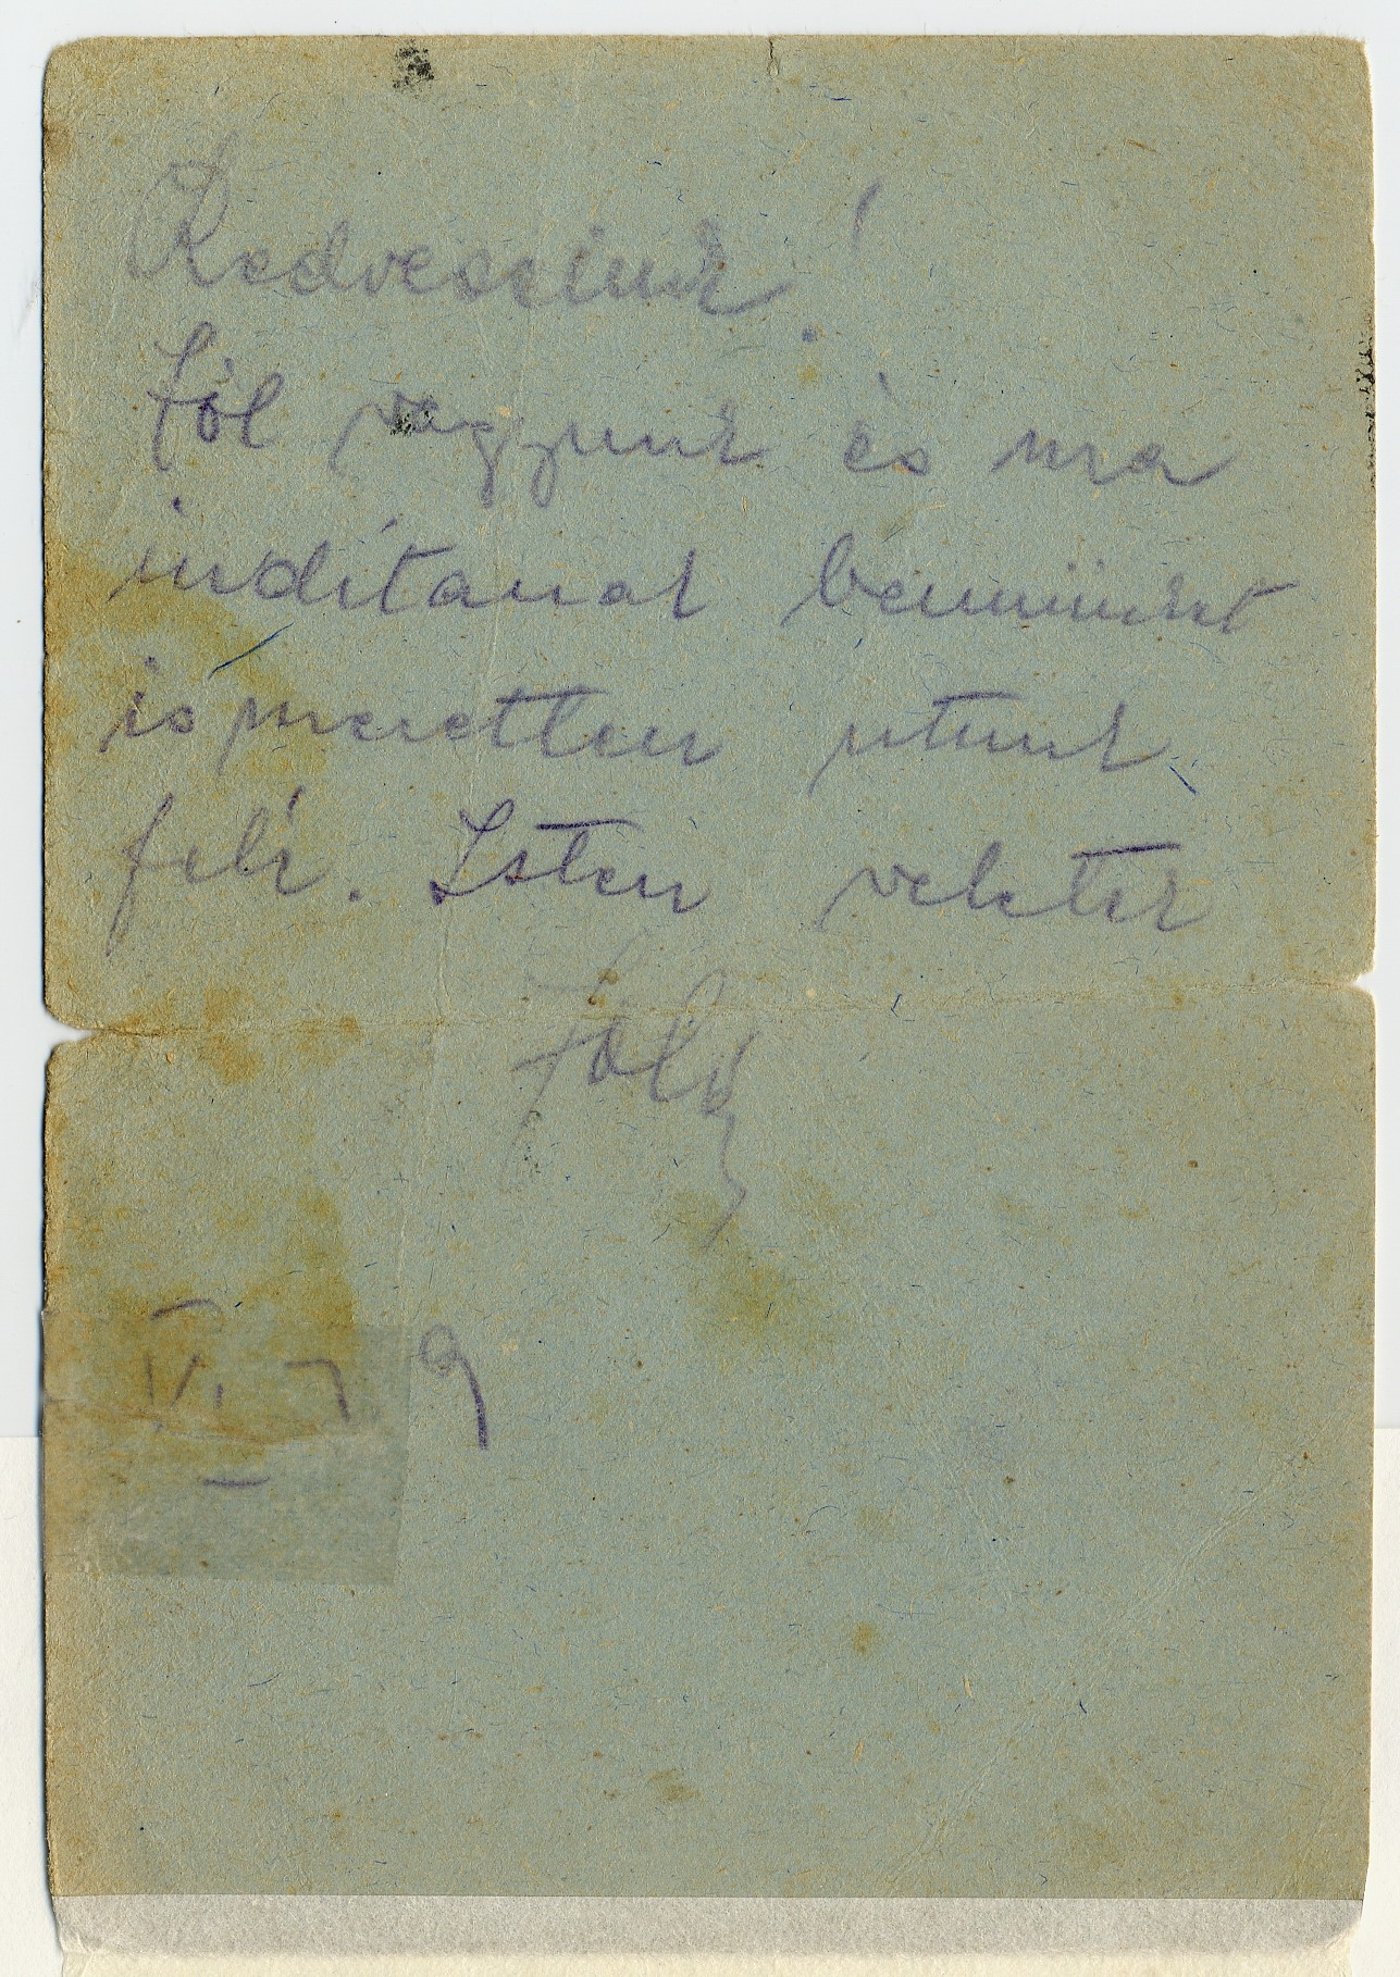 Kedveseink!
Jól vagyunk és ma
indítanak bennünket
ismeretlen utunk
felé. Isten veletek
VI 79